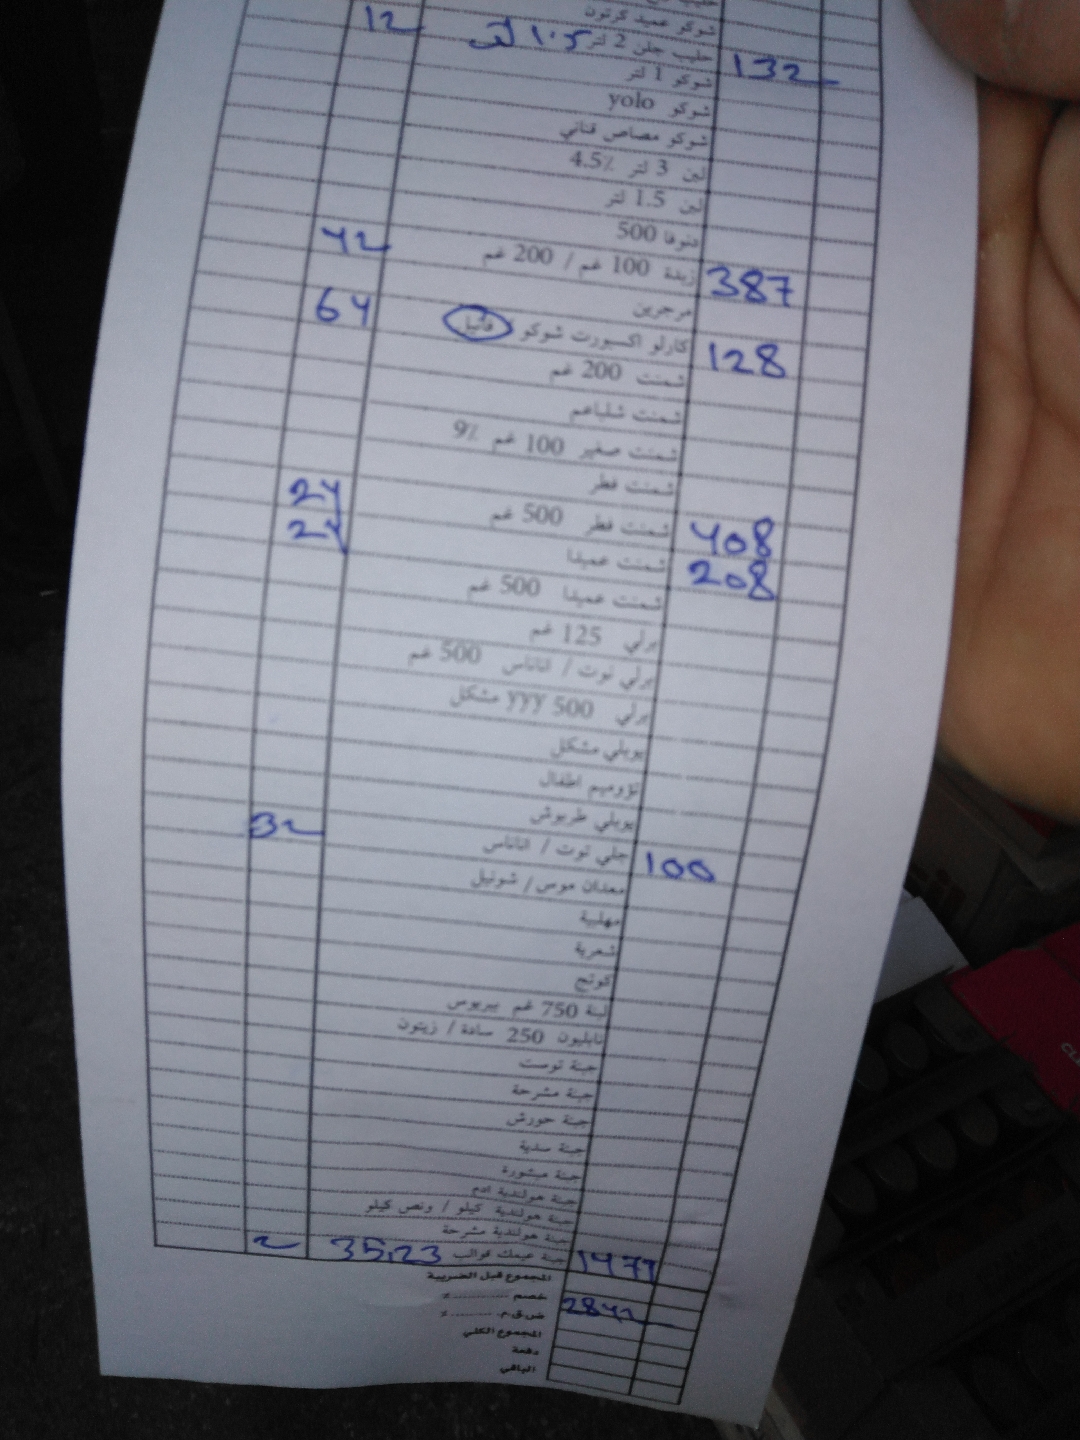 شوكو عميد كرتون
12 حليب جلن 2 لتر 1.5 لتر 132
شوكو 1 لتر
شوكو yolo
شوكو مصاص قناني
لبن 3 لتر 4.5٪
لبن 1.5 لتر
دنوفا 500
42 زبدة 100 غم / 200 غم 387
مرجرين
64 كارلو اكسبورت شوكو / فانيا 128
شمنت 200 غم
شمنت شلباعم
شمنت صغير 100 غم 9٪
شمنت فطر
24 شمنت فطر 500 غم 408
24 شمنت عميدا 208
شمنت عميدا 500 غم
برلي 125 غم
برلي توت / اناناس 500 غم
برلي 500 yyy مشكل
يوبلي مشكل
تؤوميم اطفال
يوبلي طربوش
32 جلي توت / اناناس 100
معدان موس / شونيل
مهلبية
شعرية
كوتج
لبنة 750 غم بيريوس
نابليون 250 سادة / زيتون
جبنة توست
جبنة مشرحة
جبنة حورش
جبنة سدية
جبنة مبشورة
جبنة هولندية ادم
جبنة هولندية كيلو / ونص كيلو
جبنة هولندية مشرحة
2 جبنة عيمك قوالب 35,23 1479
المجموع قبل الضريبة
خصم ............ ٪ 2842
ض.ق.م. ............ ٪
المجموع الكلي
دفعة
الباقي